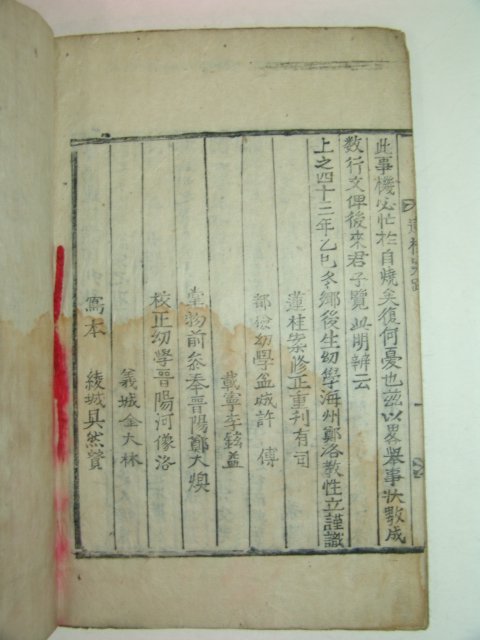 此事機必忙於自燒矣復何憂也玆以畧舉事狀數成
数行文俾後來君子覽此明辨云
上之四十二年乙巳冬鄉後生幼學海州鄭洛敎性立謹識
蓮桂案修正重刊有司
都檢幼學盆城許 傳
載寧李鉉益
掌物前叅奉晋陽鄭大煥
校正幼學晋陽河像洛
義城金大林
寫本 綾城具然贊